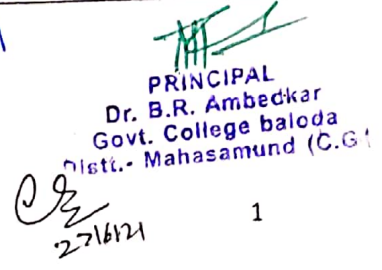 PRINCIPAL
Dr. B.R. Ambedkar
Govt. College baloda
Distt.- Mahasamund (C.G
27/6/21
1